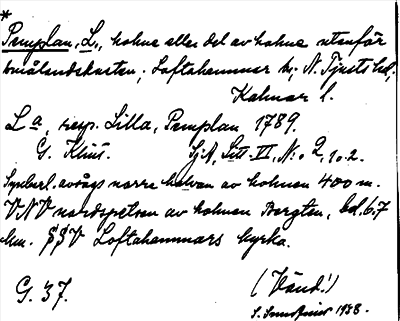 *
Pemplan, L., holme eller del av holme utanför
smålandskusten; Loftahammar sn, N. Tjusts hd,
Kalmar l.
L a, resp. Lilla, Pemplan 1789.
G. Klint. Sj.A, Litt. VI, N:o 2, 1 o. 2.
Synberl. avsågs norre halvan av holmen 400 m.
VNV nordspetsen av holmen Bergten, bel. 6.7
km. SSV Loftahammars kyrka.
G. 37. (Vänd!)
S. 1938.